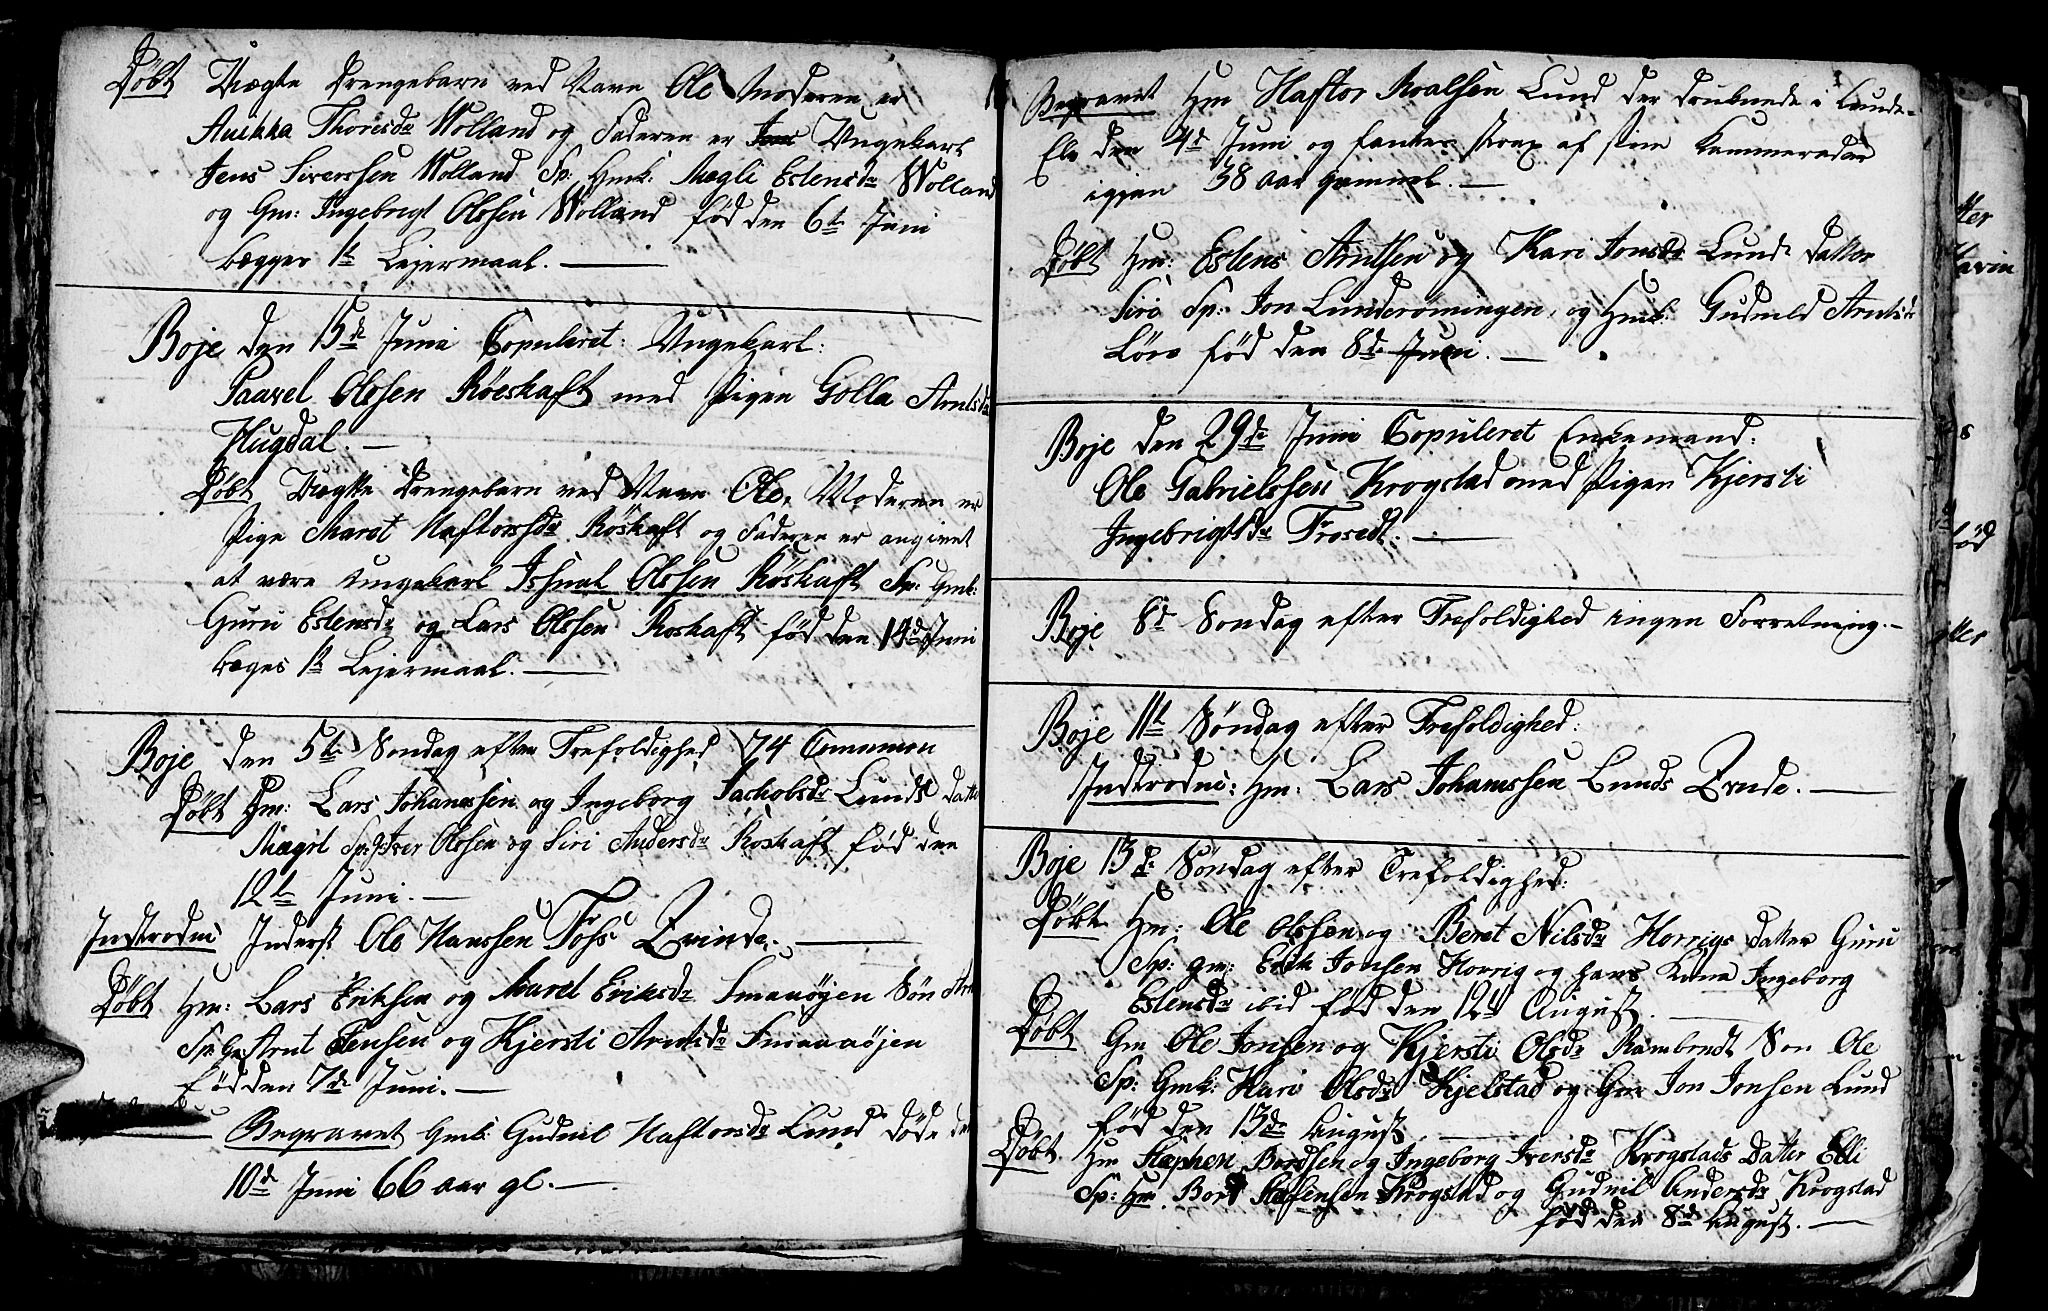 Døbt Uægte Drengebarn ved Navn Ole Moderen er
Thoresdr Wolland og Faderen er Ungekarl
Jens Siverssen Wolland Sp: Gmk: Magli Estensdr Wolland
og Gm: Ingebrigt Olssen Wolland fød den 6te Juni
begges 1t Lejermaal.
Boje den 15de Juni Copuleret: Ungekarl:
Paavel Olssen Röeskaft med Pigen Golla Arntsdr
Hugdal.
Døbt Uægte Drengebarn ved Navn Ole, Moderen er
Pige Maret Haftorsdr Röskaft og Faderen er angivet
at være ungekarl Olssen Röskaft Sp: Gmk:
Guru Estensdr og Lars Olssen Roskaft fød den 14de Juni
beges 1t Lejermaal.
Boje den 5te Søndag efter Trefoldighed 74 Commun
Døbt Hm: Lars Johanssen og Ingeborg Jachobsdr Lunds Datter
Magrit Sp: Iver Olssen og Siri Andersdr Roskaft fød den
12te Juni.
Indtrodui Inderst Ole Hanssen Foss Qvinde.
Døbt Hm: Lars Eriksen og Maret Eriksdr Smaaøjen Søn
Sp: Arnt Jensen og Kjersti Arntsdr Smaaøjen
fød den 7de Juni.
Begravet Gmk: Gudnil Haftorsdr Lund døde den
10de Juni 66 aar gl.
Begravet Hm Haftor Roalsen Lund der druknede i Lunde-
Elv den 4de Juni og fantes strax af sine Kammerader
igjen 38 aar gammel.
Døbt Hm: Estens Arntsen og Kari Jonsdr Lunds Datter
Siri Sp: Jon Lunderømingen, og Hmk: Arntsdr
fød den 8de Juni.
Boje den 29de Juni Copuleret Enkemand:
Ole Gabrielssen Krogstad med Pigen Kjersti
Ingebrigtsdr Frosedt.
Boje 8de Søndag efter Trefoldighed ingen Forretning.
Boje 11te Søndag efter Trefoldighed:
Indtrodui: Hm: Lars Johanssen Lunds Qvinde.
Boje 13de Søndag efter Trefoldighed:
Døbt Hm: Ole Olssen og Beret Nilsdr Horrigs Datter Guru
Sp: Gm: Erik Jonsen Horrig og hans Kone Ingeborg
Estensdr ibid fød den 12te August.
Døbt Gm Ole Jonsen og Kjersti Olsdr Rambredt Søn Ole
Sp: Gmk: Kari Olsdr Kjelstad og Gm Jon Jonsen Lund
fød den 13de August.
Døbt Hm Stephen Bordsen og Ingeborg Iversdr Krogstads Datter Elli
Sp: Hm Bord Krogstad og Gudnil Andersdr Krogstad
fød den 8de August.